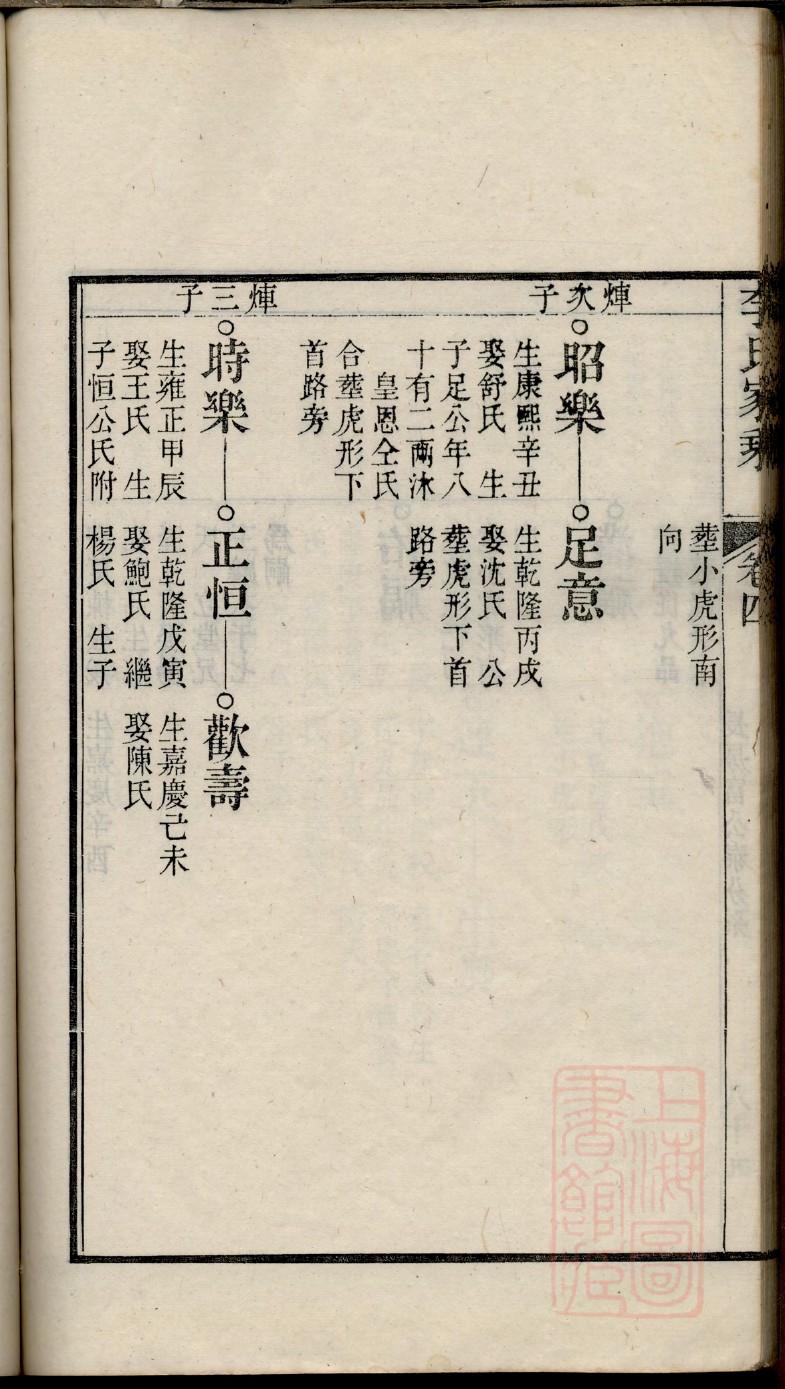 李氏家乘
卷四
塟小虎形南
向
煇次子
昭樂
生康熙辛丑
娶舒氏 生
子足公年八
十有二兩沐
皇恩仝氏
合塟虎形下
首路旁
足意
生乾隆丙戌
娶沈氏 公
塟虎形下首
路旁
煇三子
時樂
生雍正甲辰
娶王氏 生
子恒公氏附
正恒
生乾隆戊寅
娶鮑氏 繼
楊氏 生子
歡壽
生嘉慶己未
娶陳氏
上海圖
書館藏